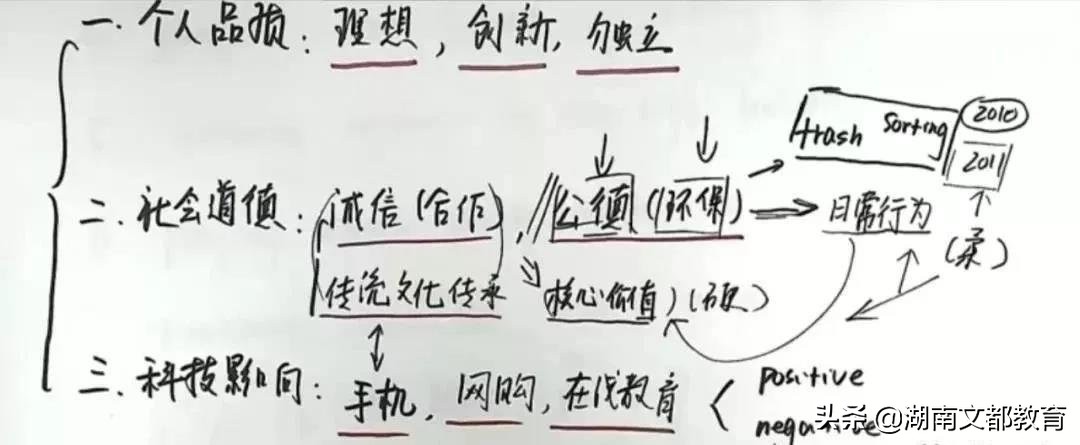 一. 个人品质: 理想, 创新, 独立
trash sorting
2010
2011
二. 社会道德: 诚信(合作), 公德(环保)
日常行为
(柔)
传统文化传承
核心价值)(硬)
三. 科技影响: 手机, 网购, 在线教育
positive
negative
头条 @湖南文都教育